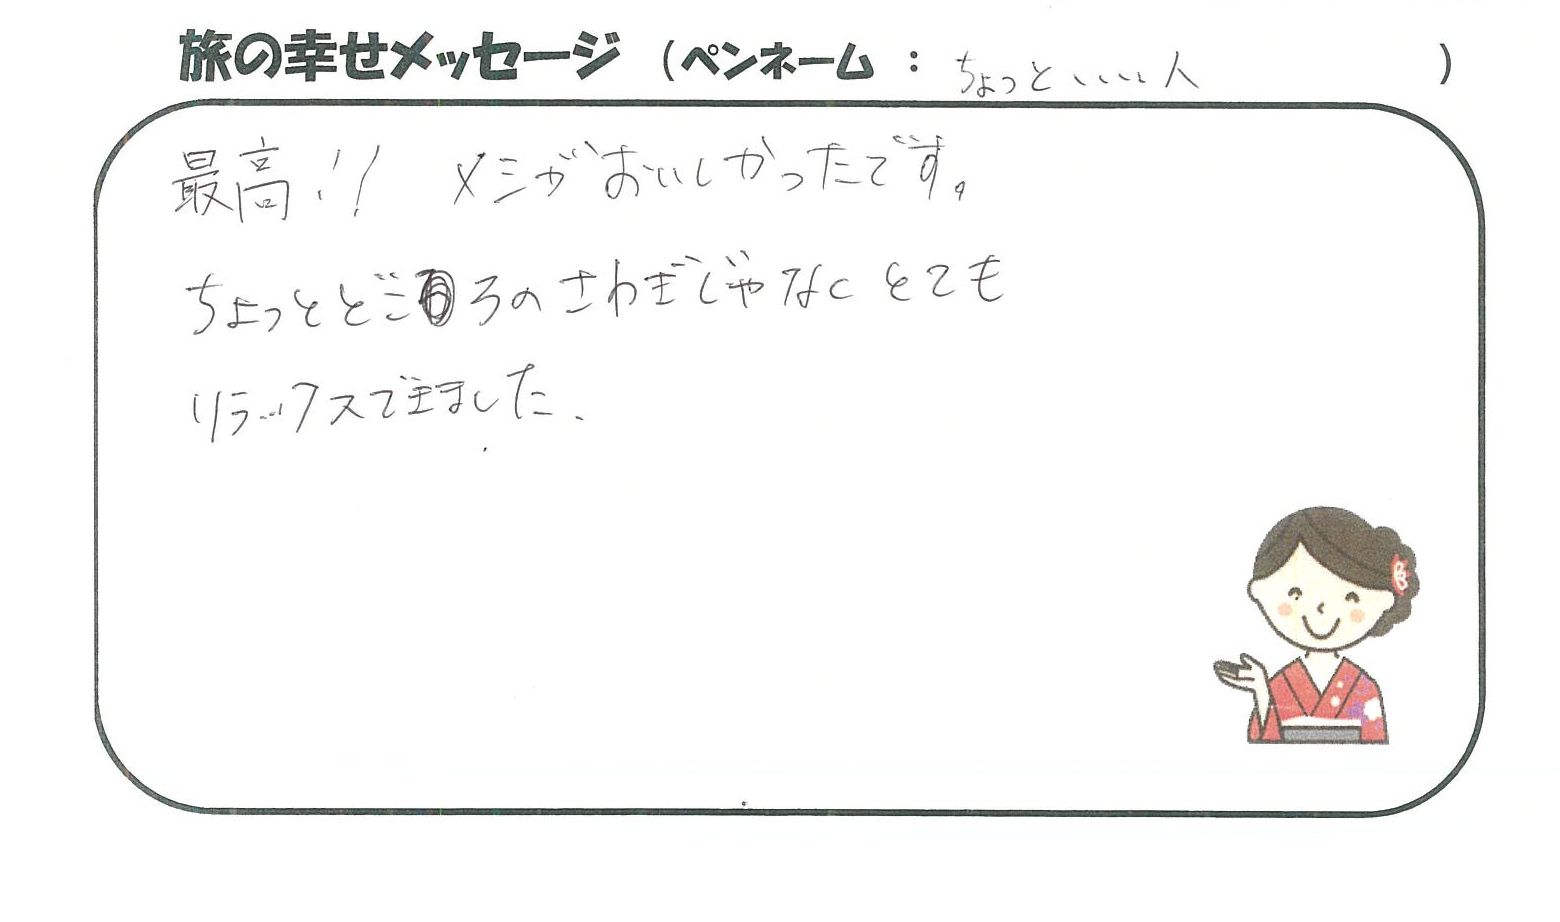 旅の幸せメッセージ (ペンネーム : ちょっといい人 )
最高!! メシがおいしかったです。
ちょっとどころのさわぎじゃなくとても
リラックスできました.